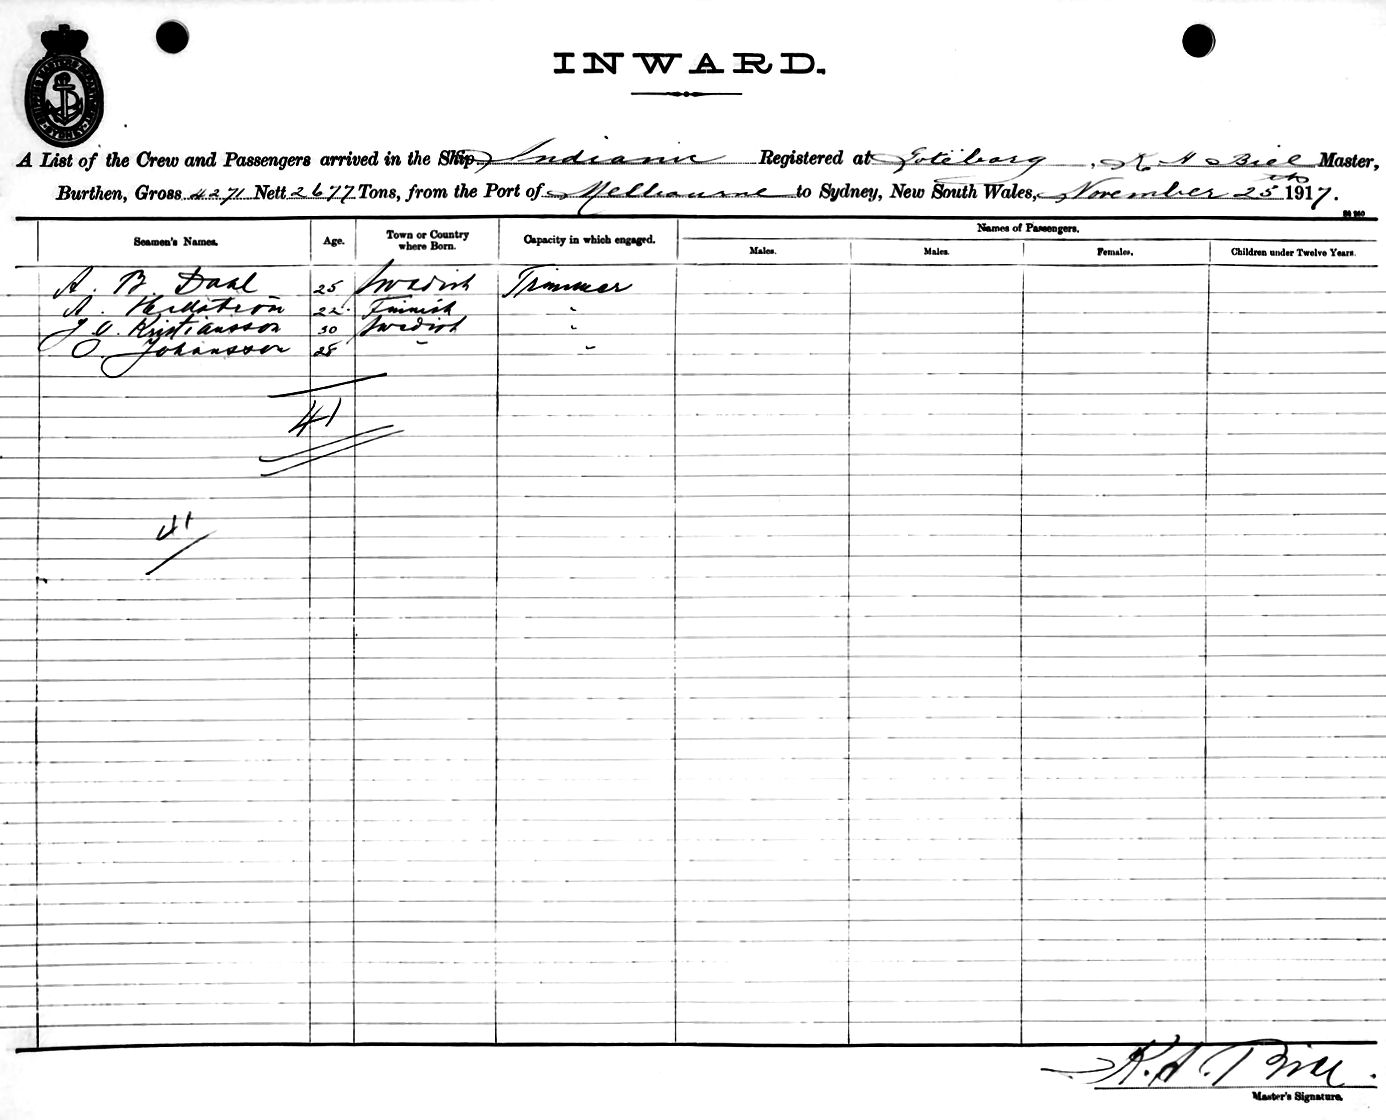 INWARD.
A List of the Crew and Passengers arrived in the Ship, Registered at Göteborg, K A Biel Master,
Burthen, Gross 4271 Nett 2677 Tons, from the Port of Melbourne to Sydney, New South Wales, November 25th 1917.
Names of Passengers.
Seamen's Names. Age. Town or Country where Born. Capacity in which engaged. Males. Males. Females. Children under Twelve Years.
A. B. Dahl 25 Swedish Trimmer
A. 22 Finnish "
Kristiansson 30 Swedish "
O. Johansson 28 " "
41
41
K. A. Biel.
Master's Signature.